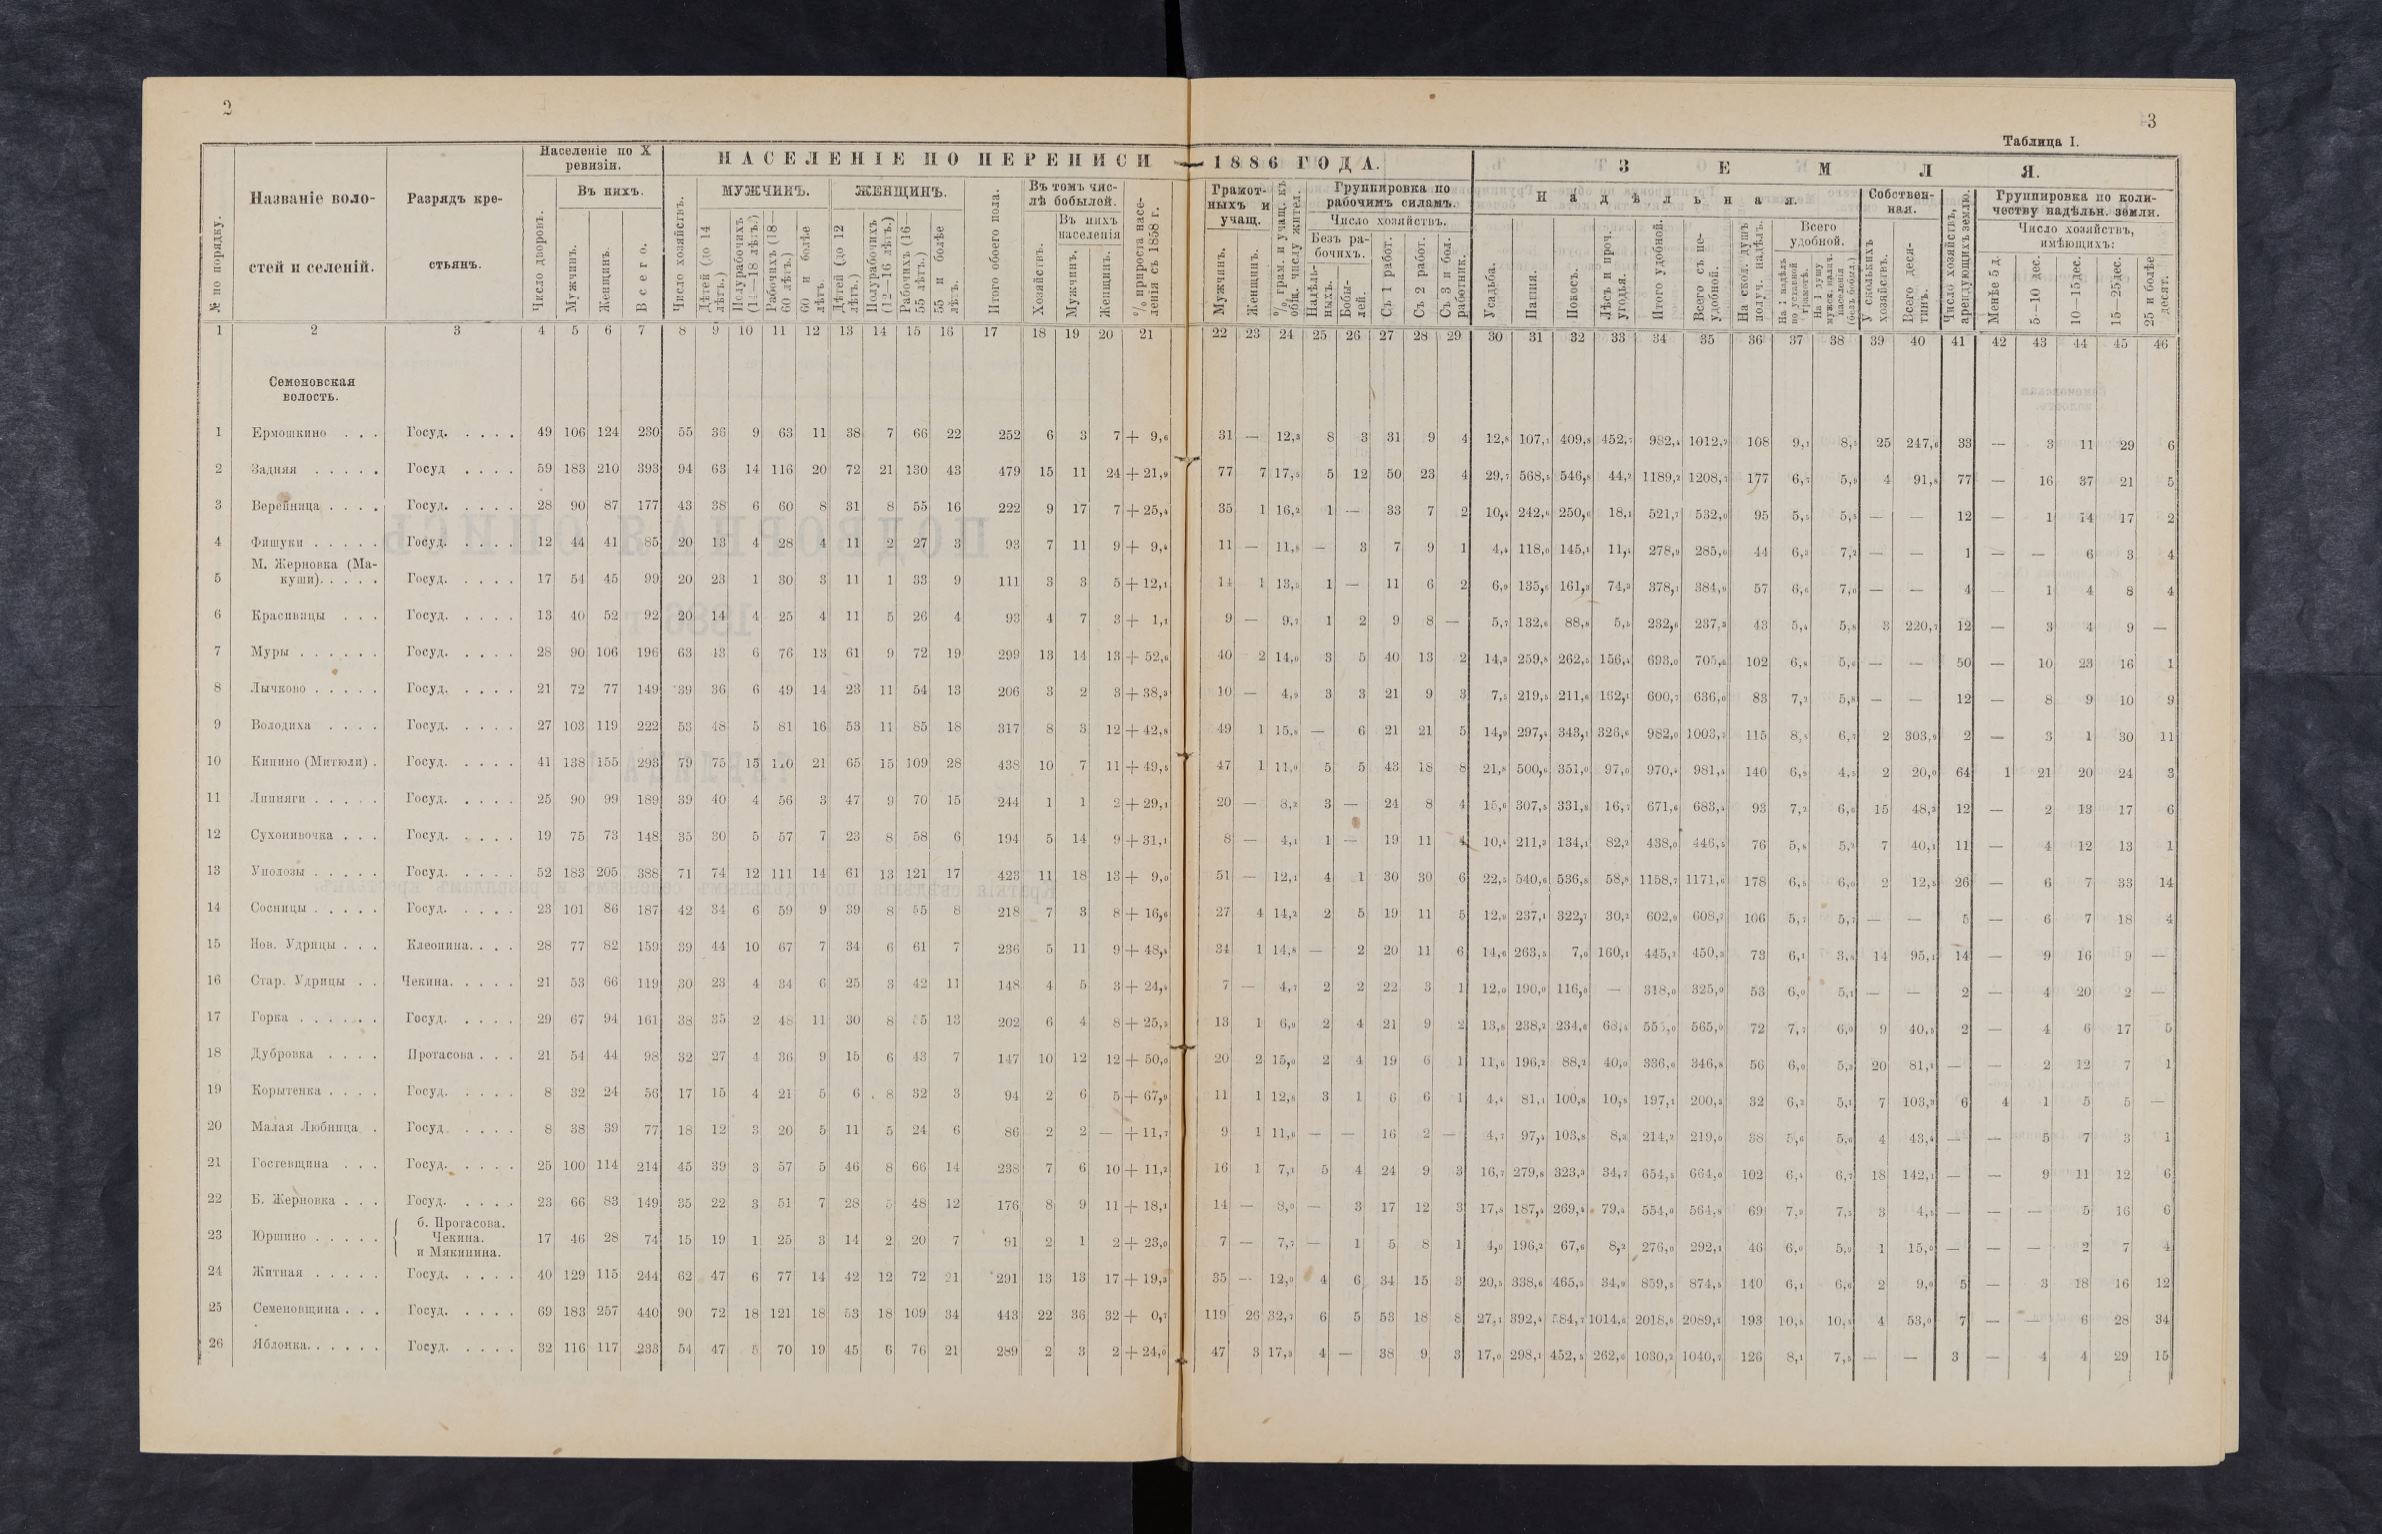 2
3
Таблица I.
№ по порядку.
Названіе воло-
стей и селеній.
Разрядъ кре-
стьянъ.
Населеніе по X
ревизіи.
Число дворовъ.
Въ нихъ.
Мужчинъ.
Женщинъ.
Всего.
НАСЕЛЕНІЕ ПО ПЕРЕПИСИ — 1886 ГОДА.
Число хозяйствъ.
МУЖЧИНЪ.
Дѣтей (до 14 лѣтъ.)
Полурабочихъ (14—18 лѣтъ.)
Рабочихъ (18—60 лѣтъ.)
60 и болѣе лѣтъ.
ЖЕНЩИНЪ.
Дѣтей (до 12 лѣтъ.)
Полурабочихъ (12—16 лѣтъ.)
Рабочихъ (16—55 лѣтъ.)
55 и болѣе лѣтъ.
Итого обоего пола.
Въ томъ чис-
лѣ бобылей.
Хозяйствъ.
Въ нихъ
населенія
Мужчинъ.
Женщинъ.
% прироста насе-
ленія съ 1858 г.
Грамот-
ныхъ и
учащ.
Мужчинъ.
Женщинъ.
% грам. и учащ. къ
общ. числу жител.
Группировка по
рабочимъ силамъ.
Число хозяйствъ.
Безъ ра-
бочихъ.
Надѣль-
ныхъ.
Бобы-
лей.
Съ 1 работ.
Съ 2 работ.
Съ 3 и бол.
работник.
ЗЕМЛЯ.
Надѣльная.
Усадьба.
Пашня.
Покосъ.
Лѣсъ и проч.
угодья.
Итого удобной.
Всего съ не-
удобной.
На скол. душъ
получ. надѣлъ.
Всего
удобной.
На 1 надѣлъ
по уставной
грамотѣ.
На 1 душу
мужск. налич.
населенія
(безъ бобыл.)
Собствен-
ная.
У сколькихъ
хозяйствъ.
Всего деся-
тинъ.
Число хозяйствъ,
арендующихъ землю.
Группировка по коли-
честву надѣльн. земли.
Число хозяйствъ,
имѣющихъ:
Менѣе 5 д.
5—10 дес.
10—15 дес.
15—25 дес.
25 и болѣе
десят.
1 2 3 4 5 6 7 8 9 10 11 12 13 14 15 16 17 18 19 20 21 22 23 24 25 26 27 28 29 30 31 32 33 34 35 36 37 38 39 40 41 42 43 44 45 46
Семеновская
волость.
1 Ермошкино . . . Госуд. . . . . 49 106 124 230 55 36 9 63 11 38 7 66 22 252 6 3 7 + 9,6 31 — 12,3 8 3 31 9 4 12,8 107,1 409,8 452,7 982,4 1012,2 108 9,1 8,5 25 247,6 33 — 3 11 29 6
2 Задняя . . . . . Госуд . . . . 59 183 210 393 94 63 14 116 20 72 21 130 43 479 15 11 24 + 21,9 77 7 17,5 5 12 50 23 4 29,7 568,5 546,8 44,2 1189,2 1208,7 177 6,7 5,9 4 91,8 77 — 16 37 21 5
3 Верейница . . . . Госуд. . . . . 28 90 87 177 43 38 6 60 8 31 8 55 16 222 9 17 7 + 25,4 35 1 16,2 1 — 33 7 2 10,4 242,6 250,6 18,1 521,7 532,0 95 5,5 5,5 — — 12 — 1 14 17 2
4 Фишуки . . . . . Госуд. . . . . 12 44 41 85 20 13 4 28 4 11 2 27 3 93 7 11 9 + 9,4 11 — 11,8 — 3 7 9 1 4,4 118,0 145,1 11,4 278,9 285,0 44 6,3 7,2 — — 1 — — 6 3 4
М. Жерновка (Ма-
5 куши). . . . . Госуд. . . . . 17 54 45 99 20 23 1 30 3 11 1 33 9 111 3 3 5 + 12,1 14 1 13,5 1 — 11 6 2 6,9 135,6 161,3 74,3 378,1 384,9 57 6,6 7,0 — — 4 — 1 4 8 4
6 Красивицы . . . Госуд. . . . . 13 40 52 92 20 14 4 25 4 11 5 26 4 93 4 7 3 + 1,1 9 — 9,7 1 2 9 8 — 5,7 132,6 88,8 5,5 232,6 237,3 43 5,4 5,8 3 220,7 12 — 3 4 9 —
7 Муры . . . . . . Госуд. . . . . 28 90 106 196 63 43 6 76 13 61 9 72 19 299 13 14 13 + 52,6 40 2 14,0 3 5 40 13 2 14,3 259,8 262,5 156,4 693,0 705,5 102 6,8 5,6 — — 50 — 10 23 16 1
8 Лычково . . . . . Госуд. . . . . 21 72 77 149 39 36 6 49 14 23 11 54 13 206 3 2 3 + 38,3 10 — 4,9 3 3 21 9 3 7,5 219,5 211,6 162,1 600,7 636,0 83 7,2 5,8 — — 12 — 8 9 10 9
9 Володиха . . . . Госуд. . . . . 27 103 119 222 53 48 5 81 16 53 11 85 18 317 8 3 12 + 42,8 49 1 15,8 — 6 21 21 5 14,9 297,4 343,1 326,6 982,0 1003,2 115 8,5 6,7 2 303,9 2 — 3 1 30 11
10 Кипино (Митюли) . Госуд. . . . . 41 138 155 293 79 75 15 110 21 65 15 109 28 438 10 7 11 + 49,5 47 1 11,0 5 5 43 18 8 21,8 500,6 351,0 97,0 970,4 981,4 140 6,9 4,5 2 20,0 64 1 21 20 24 3
11 Липняги . . . . . Госуд. . . . . 25 90 99 189 39 40 4 56 3 47 9 70 15 244 1 1 2 + 29,1 20 — 8,2 3 — 24 8 4 15,6 307,5 331,8 16,7 671,6 683,4 93 7,2 6,6 15 48,3 12 — 2 13 17 6
12 Сухонивочка . . . Госуд. . . . . 19 75 73 148 35 30 5 57 7 23 8 58 6 194 5 14 9 + 31,1 8 — 4,1 1 — 19 11 4 10,4 211,3 134,1 82,2 438,0 446,5 76 5,8 5,2 7 40,1 11 — 4 12 13 1
13 Уполозы . . . . . Госуд. . . . . 52 183 205 388 71 74 12 111 14 61 13 121 17 423 11 18 13 + 9,0 51 — 12,1 4 1 30 30 6 22,5 540,6 536,8 58,8 1158,7 1171,6 178 6,5 6,0 2 12,5 26 — 6 7 33 14
14 Сосницы . . . . . Госуд. . . . . 23 101 86 187 42 34 6 59 9 39 8 55 8 218 7 3 8 + 16,6 27 4 14,2 2 5 19 11 5 12,9 237,1 322,7 30,2 602,9 608,2 106 5,7 5,7 — — 5 — 6 7 18 4
15 Нов. Удрицы . . . Клеопина. . . . 28 77 82 159 39 44 10 67 7 34 6 61 7 236 5 11 9 + 48,4 34 1 14,8 — 2 20 11 6 14,6 263,5 7,0 160,1 445,2 450,3 73 6,1 3,8 14 95,1 14 — 9 16 9 —
16 Стар. Удрицы . . Чекина. . . . . 21 53 66 119 30 23 4 34 6 25 3 42 11 148 4 5 3 + 24,4 7 — 4,7 2 2 22 3 1 12,0 190,0 116,0 — 318,0 325,0 53 6,0 5,1 — — 2 — 4 20 2 —
17 Горка . . . . . . Госуд. . . . . 29 67 94 161 38 35 2 48 11 30 8 55 13 202 6 4 8 + 25,5 13 1 6,9 2 4 21 9 2 13,6 238,2 234,6 68,6 555,0 565,0 72 7,7 6,0 9 40,5 2 — 4 6 17 5
18 Дубровка . . . . Протасова . . . 21 54 44 98 32 27 4 36 9 15 6 43 7 147 10 12 12 + 50,0 20 2 15,0 2 4 19 6 1 11,6 196,2 88,2 40,0 336,0 346,8 56 6,0 5,3 20 81,1 — — 2 12 7 1
19 Корытенка . . . . Госуд. . . . . 8 32 24 56 17 15 4 21 5 6 8 32 3 94 2 6 5 + 67,9 11 1 12,8 3 1 6 6 1 4,4 81,4 100,8 10,8 197,1 200,5 32 6,2 5,1 7 103,3 6 4 1 5 5 —
20 Малая Любница . Госуд. . . . . 8 38 39 77 18 12 3 20 5 11 5 24 6 86 2 2 — + 11,7 9 1 11,6 — — 16 2 — 4,7 97,4 103,8 8,3 214,2 219,0 38 5,6 5,6 4 43,4 — — 5 7 3 1
21 Гостевщина . . . Госуд. . . . . 25 100 114 214 45 39 3 57 5 46 8 66 14 238 7 6 10 + 11,2 16 1 7,1 5 4 24 9 3 16,7 279,8 323,3 34,7 654,5 664,0 102 6,4 6,7 18 142,1 — — 9 11 12 6
22 Б. Жерновка . . . Госуд. . . . . 23 66 83 149 35 22 3 51 7 28 5 48 12 176 8 9 11 + 18,1 14 — 8,0 — 3 17 12 3 17,8 187,4 269,4 79,4 554,0 564,8 69 7,9 7,5 3 4,5 — — — 5 16 6
б. Протасова.
23 Юршино . . . . . Чекина. 17 46 28 74 15 19 1 25 3 14 2 20 7 91 2 1 2 + 23,0 7 — 7,7 — 1 5 8 1 4,0 196,2 67,6 8,2 276,0 292,1 46 6,0 5,9 1 15,0 — — — 2 7 4
и Мякинина.
24 Житная . . . . . Госуд. . . . . 40 129 115 244 62 47 6 77 14 42 12 72 21 291 13 13 17 + 19,3 35 — 12,0 4 6 34 15 3 20,5 338,6 465,5 34,9 859,5 874,5 140 6,1 6,6 2 9,0 5 — 3 18 16 12
25 Семеновщина . . . Госуд. . . . . 69 183 257 440 90 72 18 121 18 53 18 109 34 443 22 36 32 + 0,7 119 26 32,7 6 5 53 18 8 27,1 392,4 584,7 1014,6 2018,8 2089,1 193 10,5 10,4 4 53,0 7 — — 6 28 34
26 Яблонка. . . . . . Госуд. . . . . 32 116 117 233 54 47 5 70 19 45 6 76 21 289 2 3 2 + 24,0 47 3 17,3 4 — 38 9 3 17,0 298,1 452,5 262,6 1030,2 1040,7 126 8,1 7,5 — — 3 — 4 4 29 15